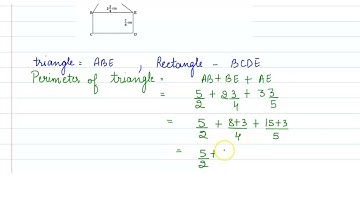 B
E
C
D
triangle = ABE , Rectangle - BCDE
Perimeter of triangle = AB + BE + AE
= 5/2 + 2 3/4 + 3 3/5
= 5/2 + 8+3/4 + 15+3/5
= 5/2 +